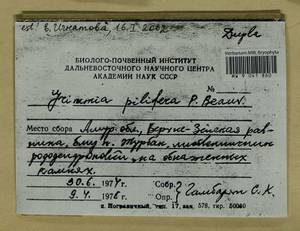 est! Е. Игнатова, 16.I 2002
Дубл
Herbarium MW, Bryophyta
MW 9 041 860
БИОЛОГО-ПОЧВЕННЫЙ ИНСТИТУТ
ДАЛЬНЕВОСТОЧНОГО НАУЧНОГО ЦЕНТРА
АКАДЕМИИ НАУК СССР
Grimmia pilifera P. Beauv.
Место сбора Амур. обл., Верхне-Зейская рав-
нина, близ п. лиственничник
на обнаженных
камнях.
30.6. 1974 г. Собр.
9.4. 1976 г. Опр. Гамбарян С. К.
п. Пограничный, тип. 17, зак. 578, тир. 50000